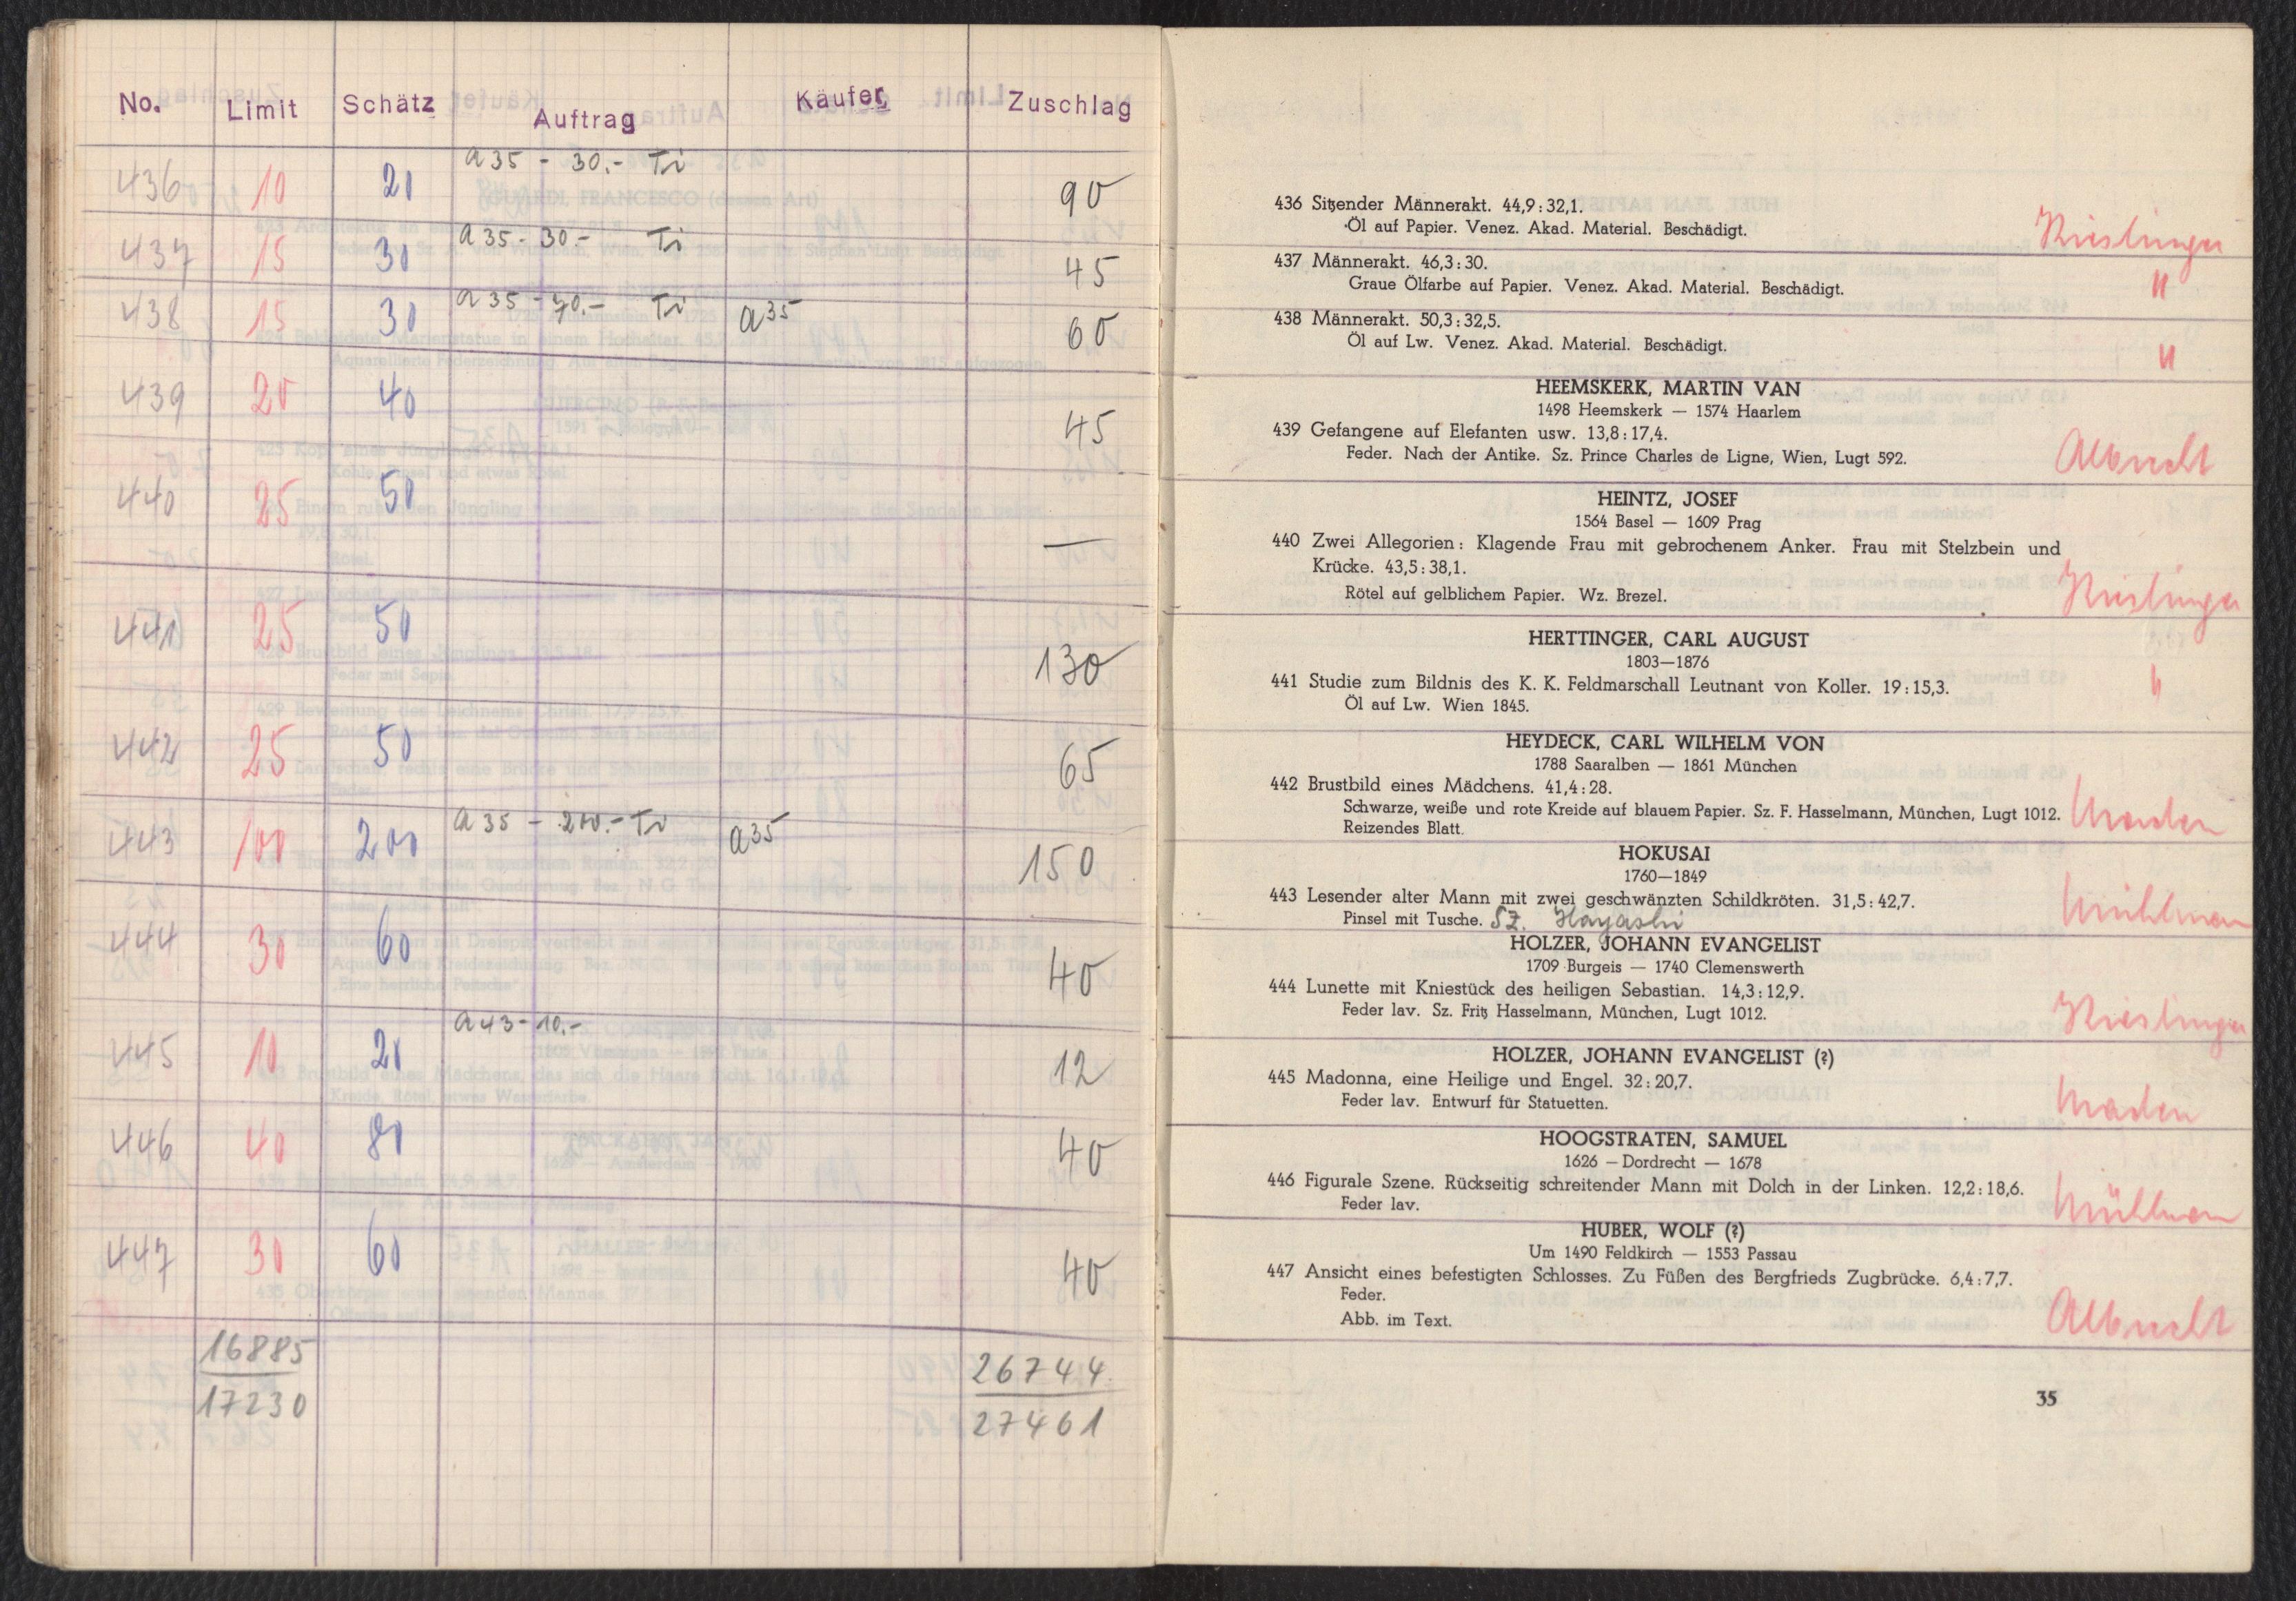 No. Limit Schätz Auftrag Käufer Zuschlag
436 10 20 a 35 - 30.- Ti 90
437 15 30 a 35 - 30.- Ti 45
438 15 30 a 35 - 70.- Ti a 35 60
439 20 40 45
440 25 50 —
441 25 50 130
442 25 50 65
443 100 200 a 35 - 210.- Ti a 35 150
444 30 60 40
445 10 20 a 43 - 10.- 12
446 40 80 40
447 30 60 40
16885 26744
17230 27461
436 Sitzender Männerakt. 44,9 : 32,1.
Öl auf Papier. Venez. Akad. Material. Beschädigt.
437 Männerakt. 46,3 : 30.
Graue Ölfarbe auf Papier. Venez. Akad. Material. Beschädigt. "
438 Männerakt. 50,3 : 32,5.
Öl auf Lw. Venez. Akad. Material. Beschädigt. "
HEEMSKERK, MARTIN VAN
1498 Heemskerk — 1574 Haarlem
439 Gefangene auf Elefanten usw. 13,8 : 17,4.
Feder. Nach der Antike. Sz. Prince Charles de Ligne, Wien, Lugt 592. Albrecht
HEINTZ, JOSEF
1564 Basel — 1609 Prag
440 Zwei Allegorien : Klagende Frau mit gebrochenem Anker. Frau mit Stelzbein und
Krücke. 43,5 : 38,1.
Rötel auf gelblichem Papier. Wz. Brezel.
HERTTINGER, CARL AUGUST
1803—1876
441 Studie zum Bildnis des K. K. Feldmarschall Leutnant von Koller. 19 : 15,3. "
Öl auf Lw. Wien 1845.
HEYDECK, CARL WILHELM VON
1788 Saaralben — 1861 München
442 Brustbild eines Mädchens. 41,4 : 28.
Schwarze, weiße und rote Kreide auf blauem Papier. Sz. F. Hasselmann, München, Lugt 1012.
Reizendes Blatt.
HOKUSAI
1760—1849
443 Lesender alter Mann mit zwei geschwänzten Schildkröten. 31,5 : 42,7.
Pinsel mit Tusche. Sz. Hayashi Mühlman
HOLZER, JOHANN EVANGELIST
1709 Burgeis — 1740 Clemenswerth
444 Lunette mit Kniestück des heiligen Sebastian. 14,3 : 12,9.
Feder lav. Sz. Fritz Hasselmann, München, Lugt 1012.
HOLZER, JOHANN EVANGELIST (?)
445 Madonna, eine Heilige und Engel. 32 : 20,7.
Feder lav. Entwurf für Statuetten.
HOOGSTRATEN, SAMUEL
1626 — Dordrecht — 1678
446 Figurale Szene. Rückseitig schreitender Mann mit Dolch in der Linken. 12,2 : 18,6.
Feder lav. Mühlman
HUBER, WOLF (?)
Um 1490 Feldkirch — 1553 Passau
447 Ansicht eines befestigten Schlosses. Zu Füßen des Bergfrieds Zugbrücke. 6,4 : 7,7.
Feder.
Abb. im Text. Albrecht
35